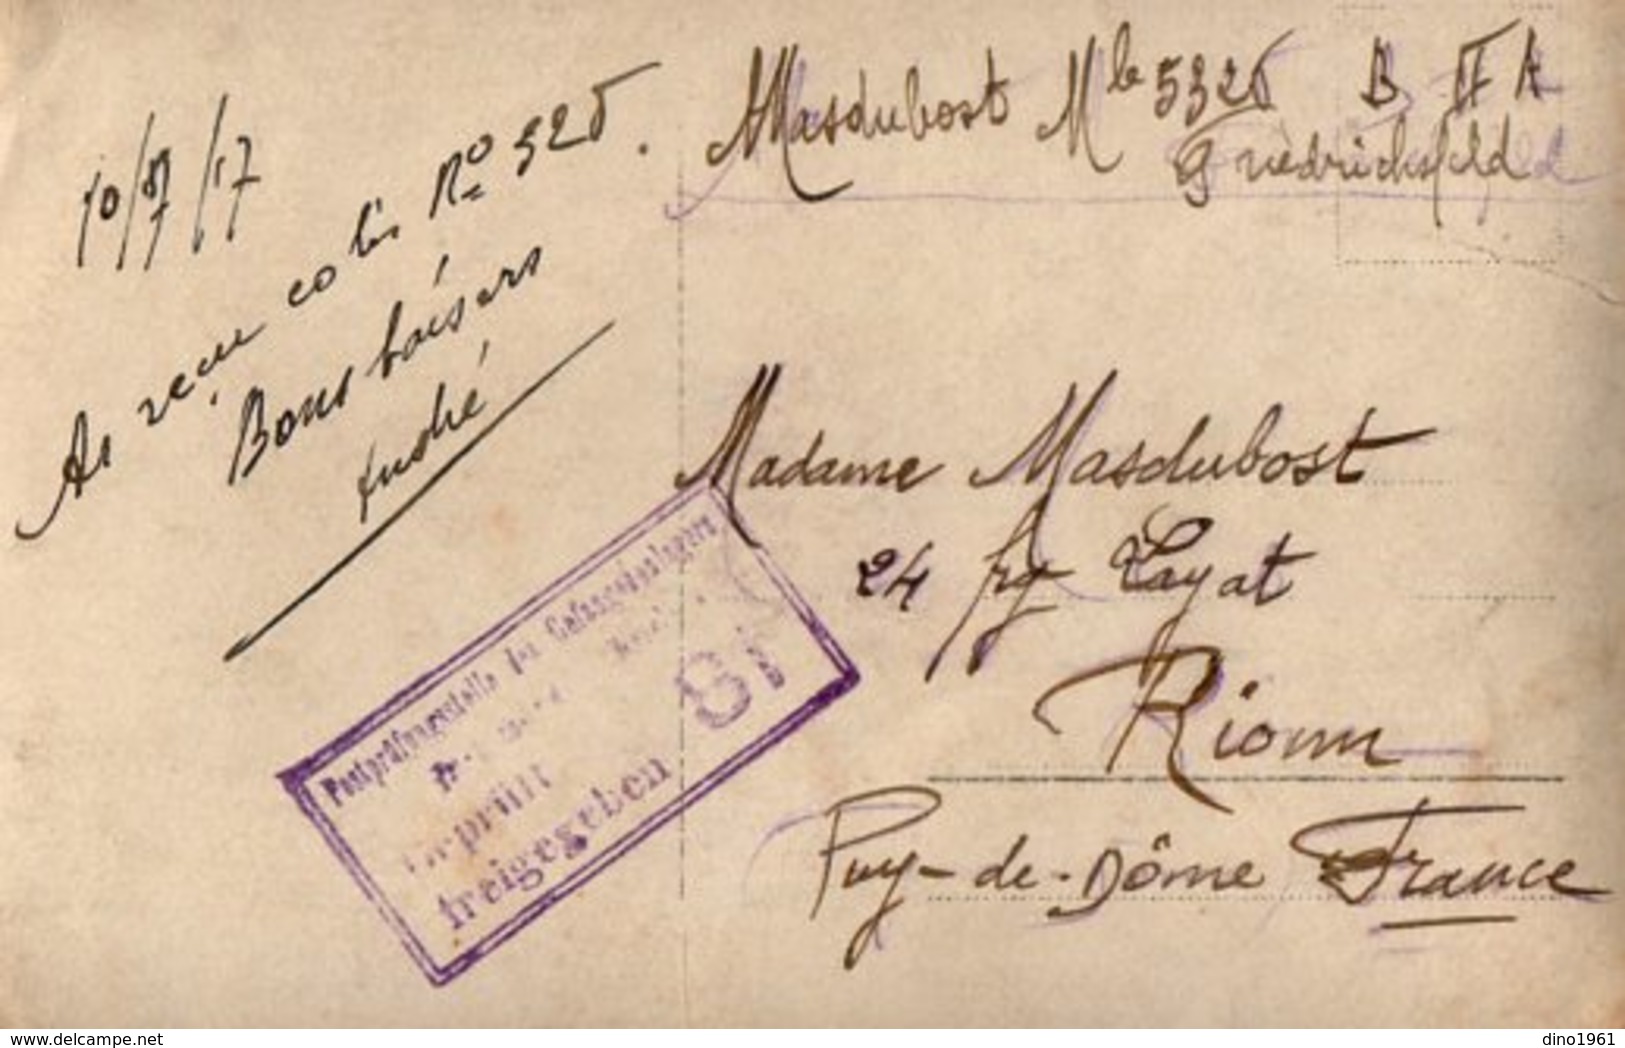 10/8/17
Ai reçu colis No 325.
Bons baisers
André
A Masdubost Mle 5325 B II A
Friedrichsfeld
Madame Masdubost
24 fg Layat
Riom
Puy-de-Dôme France
Postprüfungsstelle des Gefangenenlagers
Geprüft
freigegeben
www.delcampe.net
dino1961